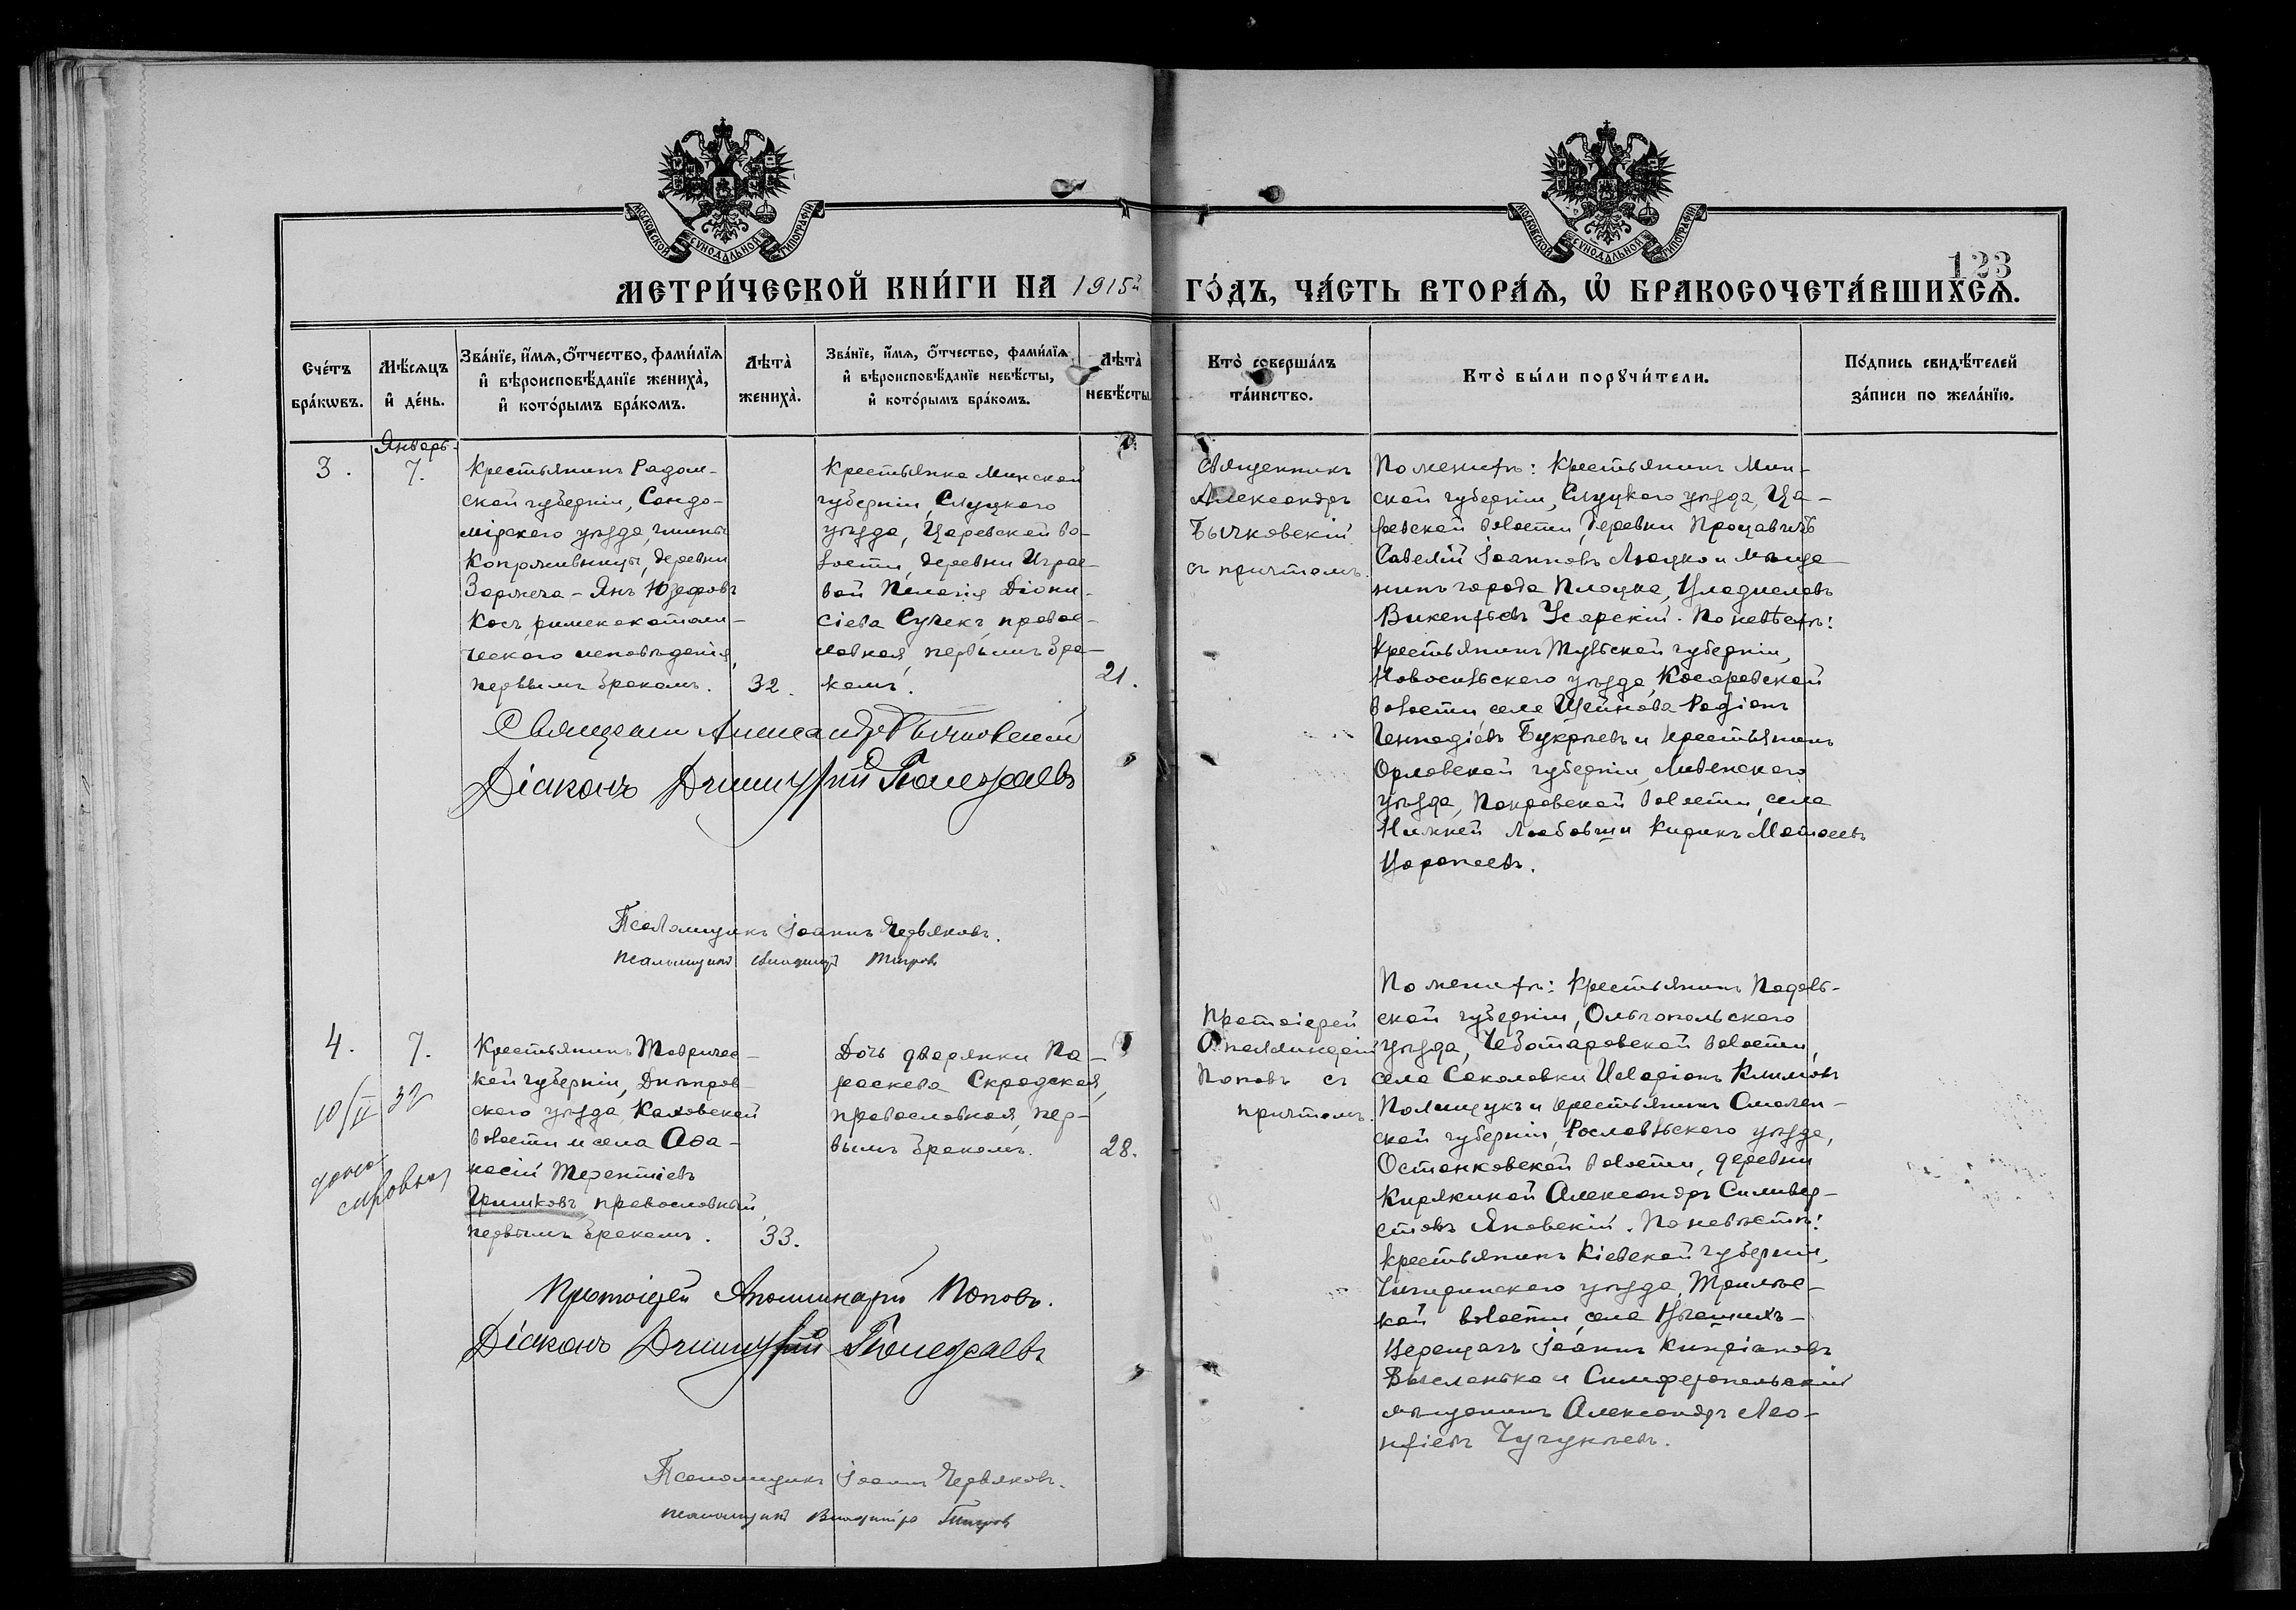 МОСКОВСКОЙ СѴНОДАЛЬНОЙ ТИПОГРАФІИ
МОСКОВСКОЙ СѴНОДАЛЬНОЙ ТИПОГРАФІИ
123
МЕТРИ́ЧЕСКОЙ КНИ́ГИ НА 1915й ГО́ДЪ, ЧА́СТЬ ВТОРА́Ѧ, Ѽ БРАКОСОЧЕТА́ВШИХСѦ.
Сче́тъ
бра́кѡвъ.
Мѣ́сѧцъ
и҆ де́нь.
Зва́нїе, и҆́мѧ, ѻ҆́тчество, фами́лїѧ
и҆ вѣроисповѣ́данїе жениха̀,
и҆ кото́рымъ бра́комъ.
Лѣта̀
жениха̀.
Зва́нїе, и҆́мѧ, ѻ҆́тчество, фами́лїѧ
и҆ вѣроисповѣ́данїе невѣ́сты,
и҆ кото́рымъ бра́комъ.
Лѣта̀
невѣ́сты.
Кто̀ соверша́лъ
та́инство.
Кто̀ бы́ли порꙋчи́тели.
По́дпись свидѣ́телей
за́писи по жела́нїю.
Январь
3.
7.
Крестьянинъ Радом-
ской губерніи, Сандо-
мірскаго уѣзда, гмины
Копрживницы, деревни
Заржеча - Янъ Юзефовъ
Косъ, римскокатоли-
ческаго исповѣданія,
первымъ бракомъ.
32.
Крестьянка Минской
губерніи, Слуцкаго
уѣзда, Царевской во-
лости, деревни Играе-
вой Пелагія Діони-
сіева Сучекъ, правос-
лавная, первымъ бра-
комъ.
21.
Священникъ
Александръ
Бычковскій
съ причтомъ.
По женихѣ: Крестьянинъ Мин-
ской губерніи, Слуцкаго уѣзда, Ца-
ревской волости, деревни Процавичъ
Савелій Іоанновъ Люцко и мѣща-
нинъ города Плоцка, Владиславъ
Викентьевъ Усарскій. По невѣстѣ:
Крестьянинъ Тульской губерніи,
Новосильскаго уѣзда, Косаревской
волости, села Щейнова Родіонъ
Геннадіевъ Букрѣевъ и крестьянинъ
Орловской губерніи, Ливенскаго
уѣзда, Покровской волости, села
Нижней Любовши Кирикъ Матвеевъ
Царапеевъ.
Священникъ Александръ Бычковскій
Діаконъ Димитрій Полежаевъ
Псаломщикъ Іоаннъ Червяковъ.
Псаломщикъ Владиміръ
4.
7.
10/II 32
Крестьянинъ Тавричес-
кой губерніи, Днѣпров-
скаго уѣзда, Каховской
волости и села Афа-
насій Терентіевъ
Гришковъ, православный,
первымъ бракомъ.
33.
Дочь дворянки Па-
раскева Скродская,
православная, пер-
вымъ бракомъ.
28.
Протоіерей
Аполлинарій
Поповъ съ
причтомъ.
По женихѣ: Крестьянинъ Подоль-
ской губерніи, Ольгопольскаго
уѣзда, Чеботаровской волости,
села Соколовки Иларіонъ Климовъ
Полищукъ и крестьянинъ Смолен-
ской губерніи, Рославльскаго уѣзда,
Астапковской волости, деревни
Кирякиной Александръ Силивер-
стовъ Яновскій. По невѣстѣ:
Крестьянинъ Кіевской губерніи,
Чигиринскаго уѣзда, Трилѣс-
кой волости, села
Іоаннъ Кипріановъ
и Симферопольскій
мѣщанинъ Александръ Лео-
нтіевъ Чугункевъ.
Протоіерей Аполлинарій Поповъ.
Діаконъ Димитрій Полежаевъ
Псаломщикъ Іоаннъ Червяковъ.
Псаломщикъ Владиміръ